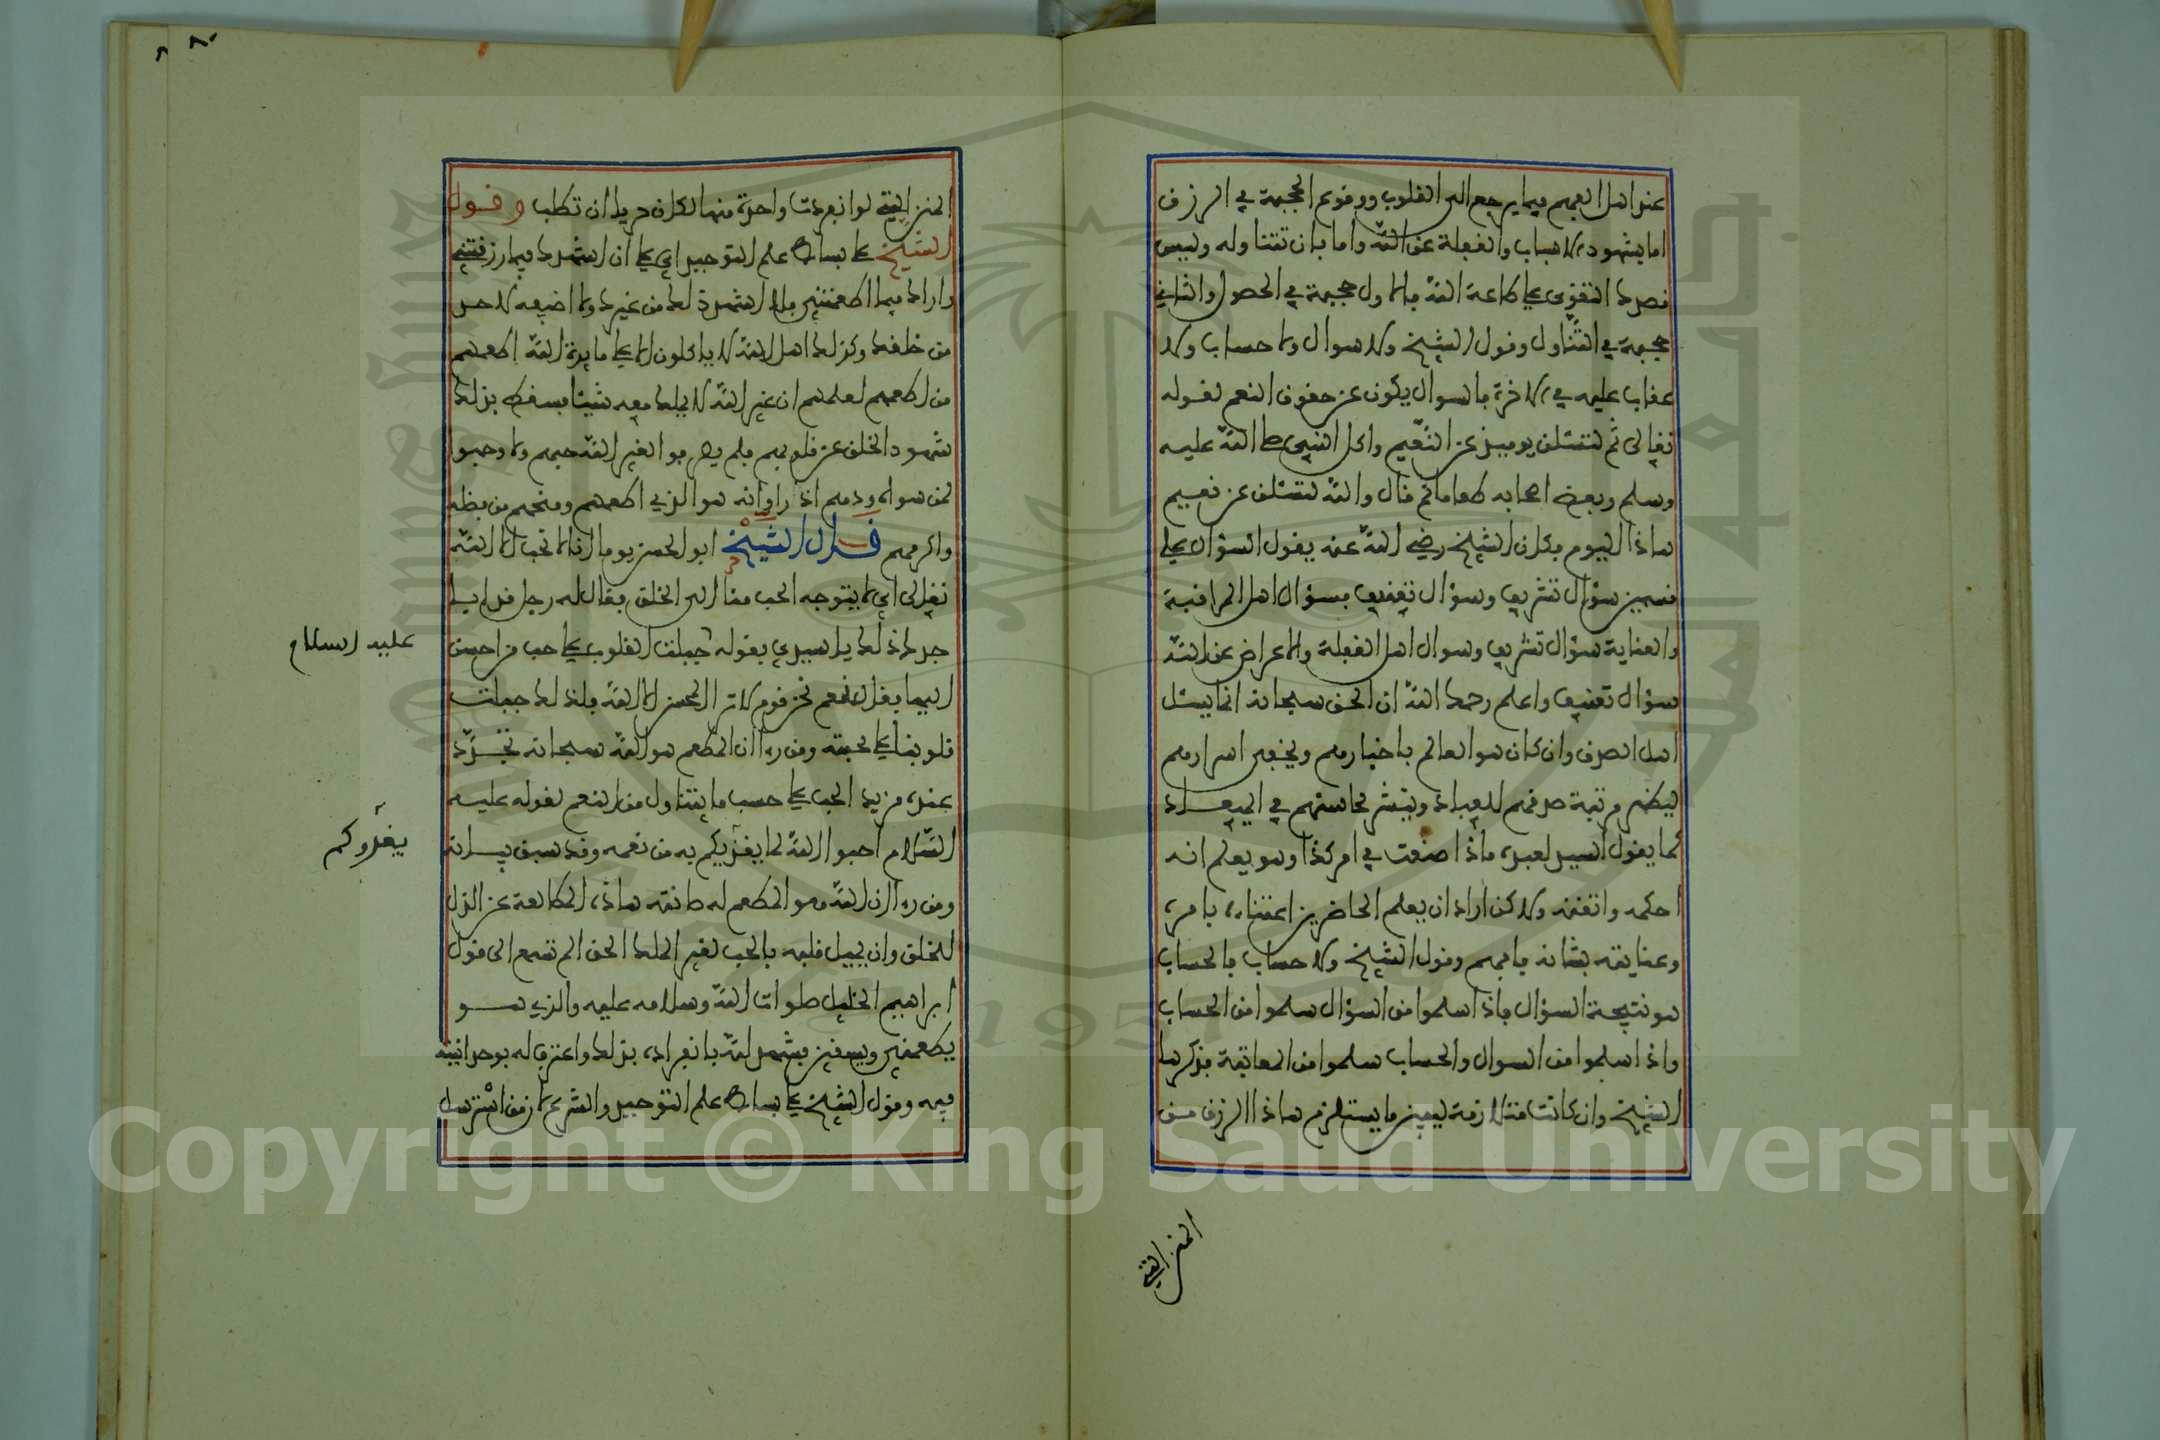 عند اهل الفهم فيما يرجع الى القلوب ووقوع الحجبة في الرزق
اما بشهود الاسباب والغفلة عن الله واما بان تتناوله وليس
قصدك التقوى على طاعة الله فالاول حجبة في الحصول والثاني
حجبة في التناول وقول الشيخ ولا سوال ولا حساب ولا
عقاب عليه في الاخرة فالسوال يكون عن حقوق النعم لقوله
تعالى ثم لتسئلن يوميذ عن النعيم واكل النبي صلى الله عليه
وسلم وبعض اصحابه طعاما ثم قال والله لتسئلن عن نعيم
هاذا اليوم فكان الشيخ رضي الله عنه يقول السؤال على
قسمين سؤال تشريف وسؤال تعنيف فسؤال اهل المراقبة
والعناية سؤال تشريف وسوال اهل الغفلة والاعراض عن الله
سؤال تعنيف واعلم رحمك الله ان الحق سبحانه انما يسئل
اهل الصدق وان كان هو العالم باخبارهم وبخفي اسرارهم
ليظهر مرتبة صدقهم للعباد وينشر محاسنهم في الميعاد
كما يقول السيد لعبده ماذا صنعت في امر كذا وهو يعلم انه
احكمه واتقنه ولاكن اراد ان يعلم الحاضرين اعتناءه بامره
وعنايته بشانه فافهم وقول الشيخ ولا حساب فالحساب
هو نتيجة السؤال فاذا سلموا من السؤال سلموا من الحساب
واذا سلموا من السوال والحساب سلموا من المعاقبة فذكرها
الشيخ وان كانت متلازمة ليبين ما يستلزم هاذا الرزق من
المنن التي
المنن التي لو انفردت واحدة منها لكان حريا ان تطلب وقول
الشيخ على بساط علم التوحيد اي على ان اشهدك فيما رزقتني
واراك فيما اطعمتني فلا اشهد ذلك من غيرك ولا اضيفه لاحد
من خلقك وكذلك اهل الله لا ياكلون الا على مايدة الله اطعمهم
من اطعمهم لعلمهم ان غير الله لا يملك معه شيئا فسقط بذلك
شهود الخلق عن قلوبهم فلم يصرفوا لغير الله حبهم ولا وجهوا
لمن سواه ودهم اذ راوا انه هو الذي اطعمهم ومنحهم من فضله
واكرمهم قال الشيخ ابو الحسن يوما انا لا نحب الا الله
تعالى اي لا يتوجه الحب منا الى الخلق فقال له رجل قد ابا
جدك ذلك يا سيدي بقوله جبلت القلوب على حب من احسن
عليه السلام
اليها فقال نعم نحن قوم لا نرا المحسن الا الله فلذلك جبلت
قلوبنا على محبته ومن رءا ان المطعم هو الله سبحانه تجدد
عنده مزيد الحب على حسب ما يتناول من النعم لقوله عليه
السلام احبوا الله لما يغذيكم به من نعمه وقد سبق بيانه
يغذوكم
ومن رءا ان الله هو المطعم له صانته هاذه المطالعة عن الذل
للخلق وان يميل قلبه بالحب لغير الملك الحق الم تسمع الى قول
ابراهيم الخليل صلوات الله وسلامه عليه والذي هو
يطعمني ويسقين فشهد لله بانفراده بذلك واعترف له بوحدانيته
فيه وقول الشيخ على بساط علم التوحيد والشرع لان من استرسل
Copyright © King Saud University
1957